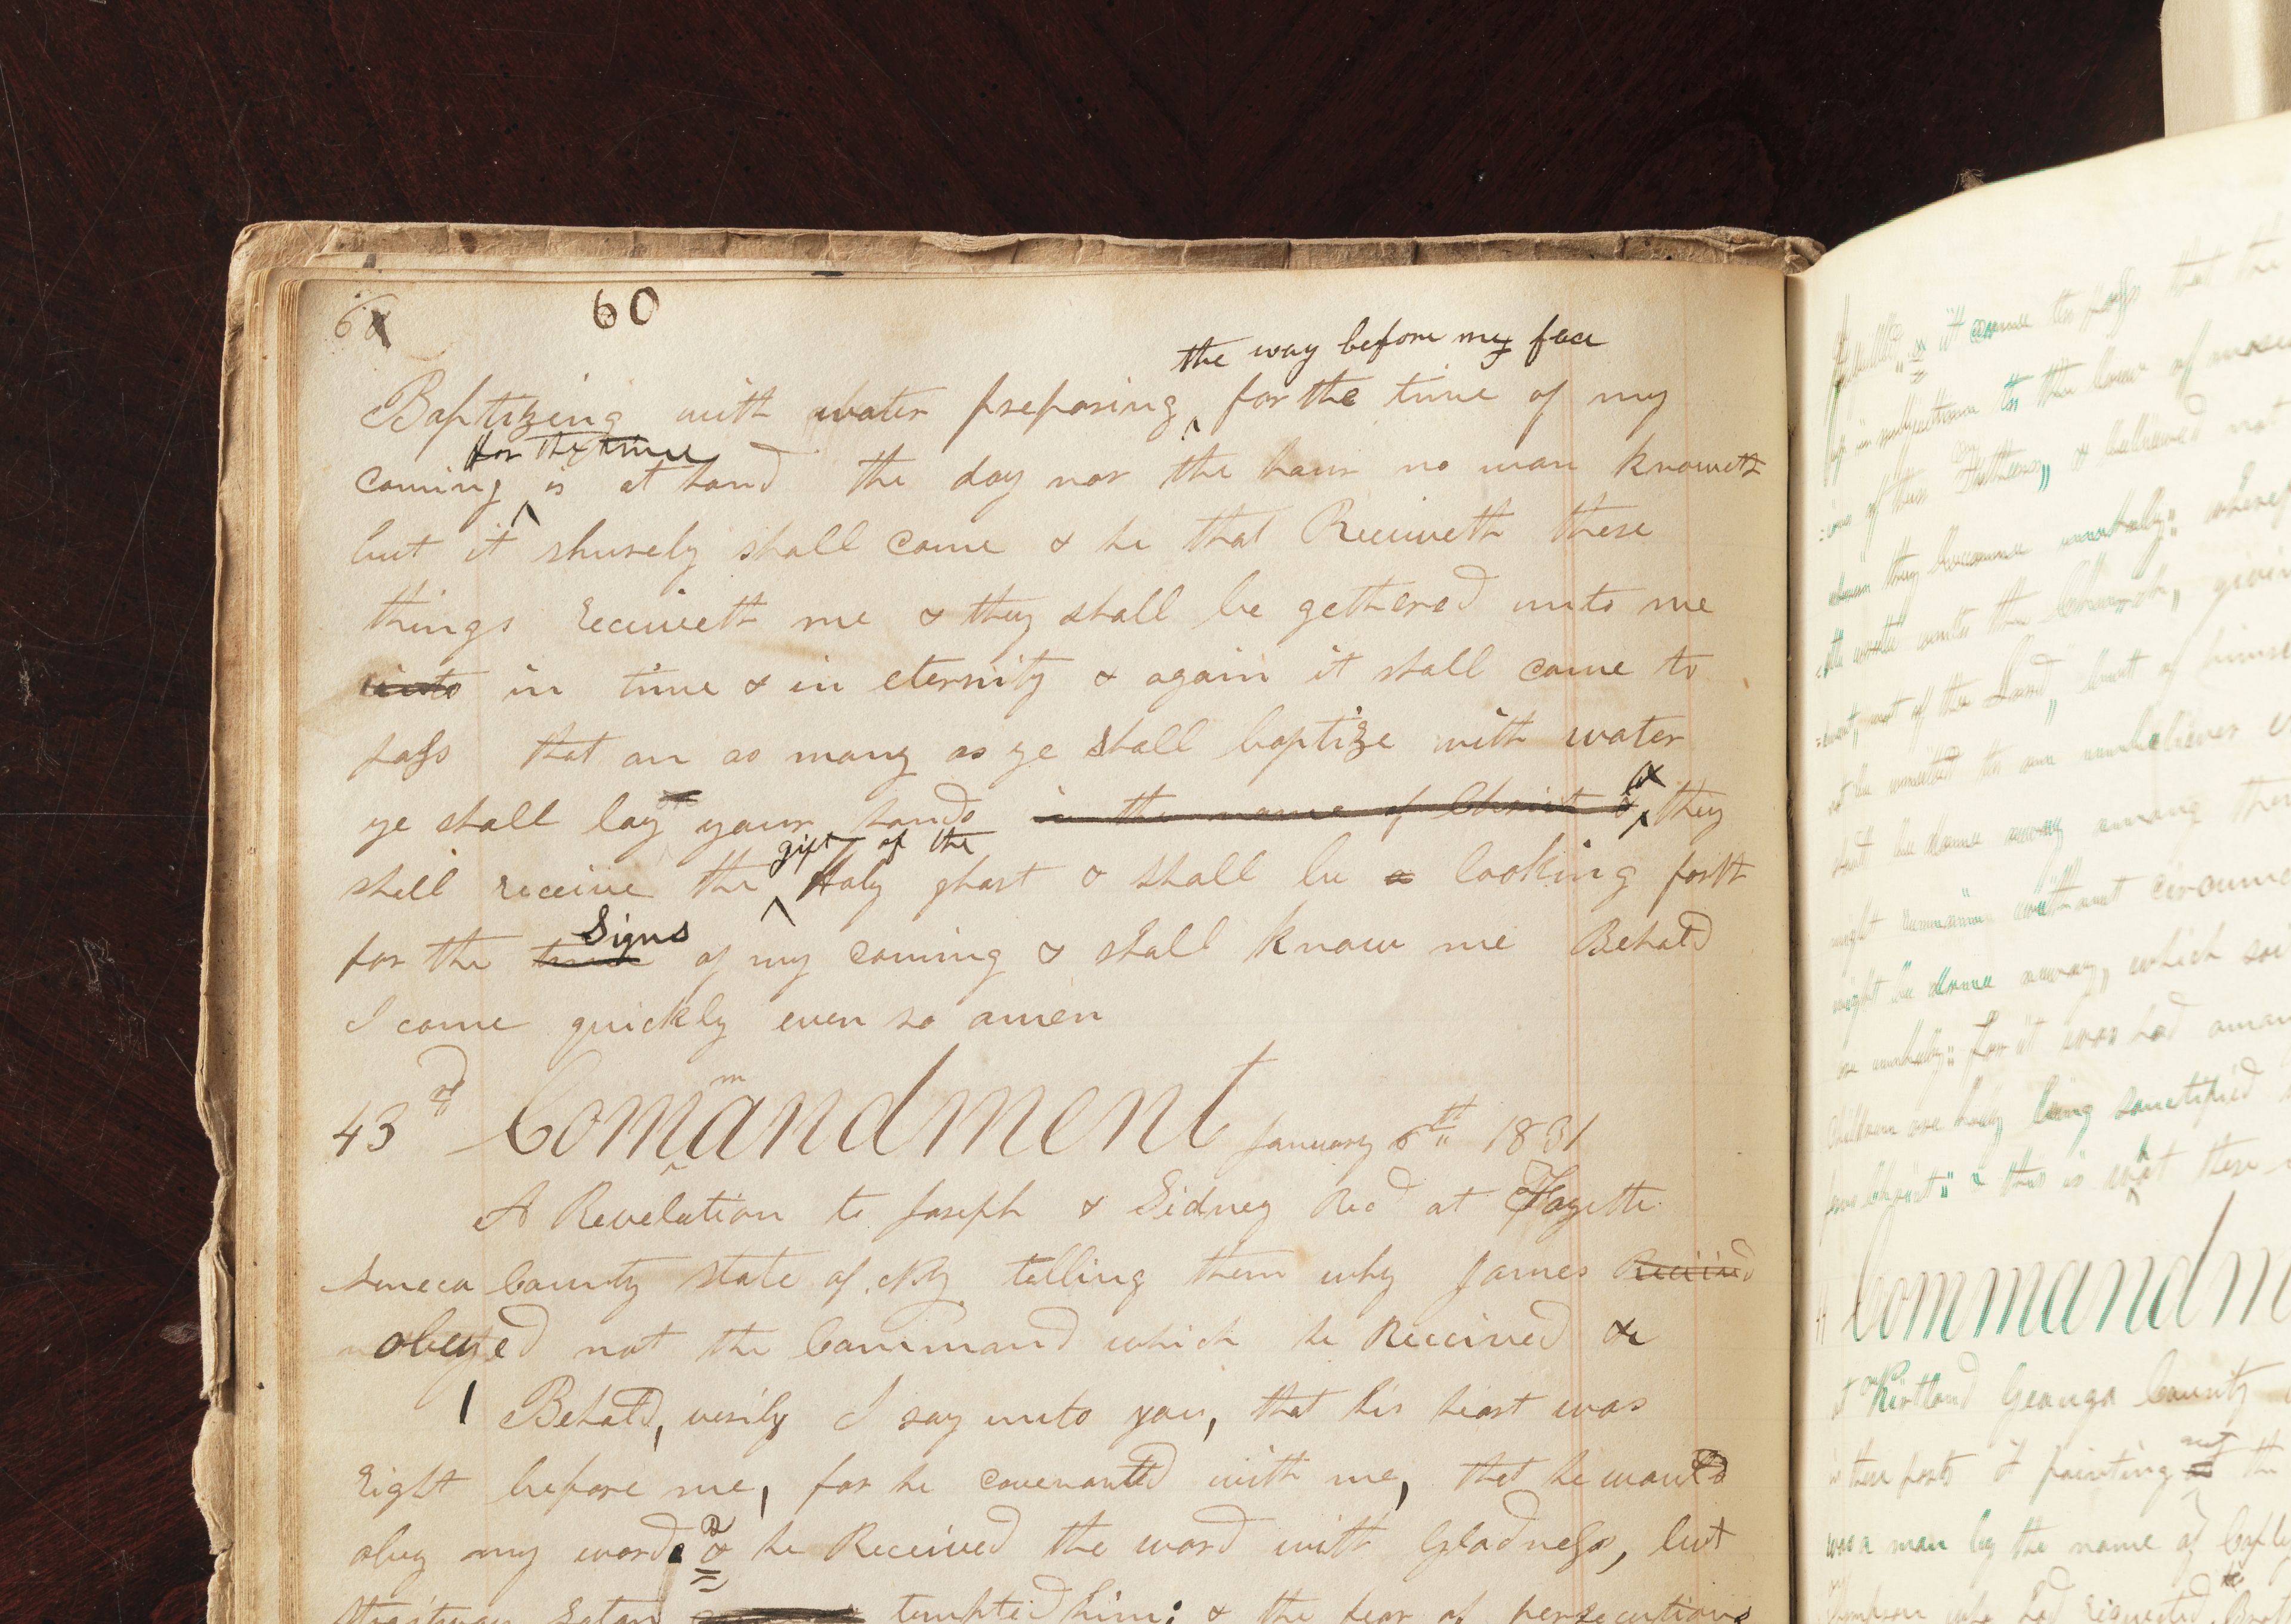 60
the way before my face
Baptizing with water preparing for the time of my
for the time
coming is at hand the day nor the hour no man knoweth
but it shurely shall come & he that Receiveth these
things receiveth me & they shall be gethered unto me
unto in time & in eternity & again it shall come to
pass that on as many as ye shall baptize with water
ye shall lay your hands in the name of Christ & & they
gift of the
shall receive the Holy ghost & shall be a looking forth
Signs
for the time of my coming & shall know me Behold
I come quickly even so amen
43rd Commandment January 5th 1831
A Revelation to Joseph & Sidney Recd at Fayette
Seneca County state of NY telling them why James Received
obeyed not the Command which he Received &c
1 Behold, verily I say unto you, that his heart was
right before me, for he covenanted with me, that he would
obey my word & he Received the word with Gladness, but
Straitway Satan tempted him; & the fear of persecutions
it came to pass that the
in subjection to the law of
of their Fathers, & believed not
they became unholy: wherefore
wrote unto the Church, giving
not of the Lord, but of himself
an unbeliever
be done away among them
might remain without
might be done away, which
are unholy: for it was had among
Children are holy being sanctified
& this is what these
Commandm
at Kirtland Geauga County
these parts & pointing out the
was a man by the name of